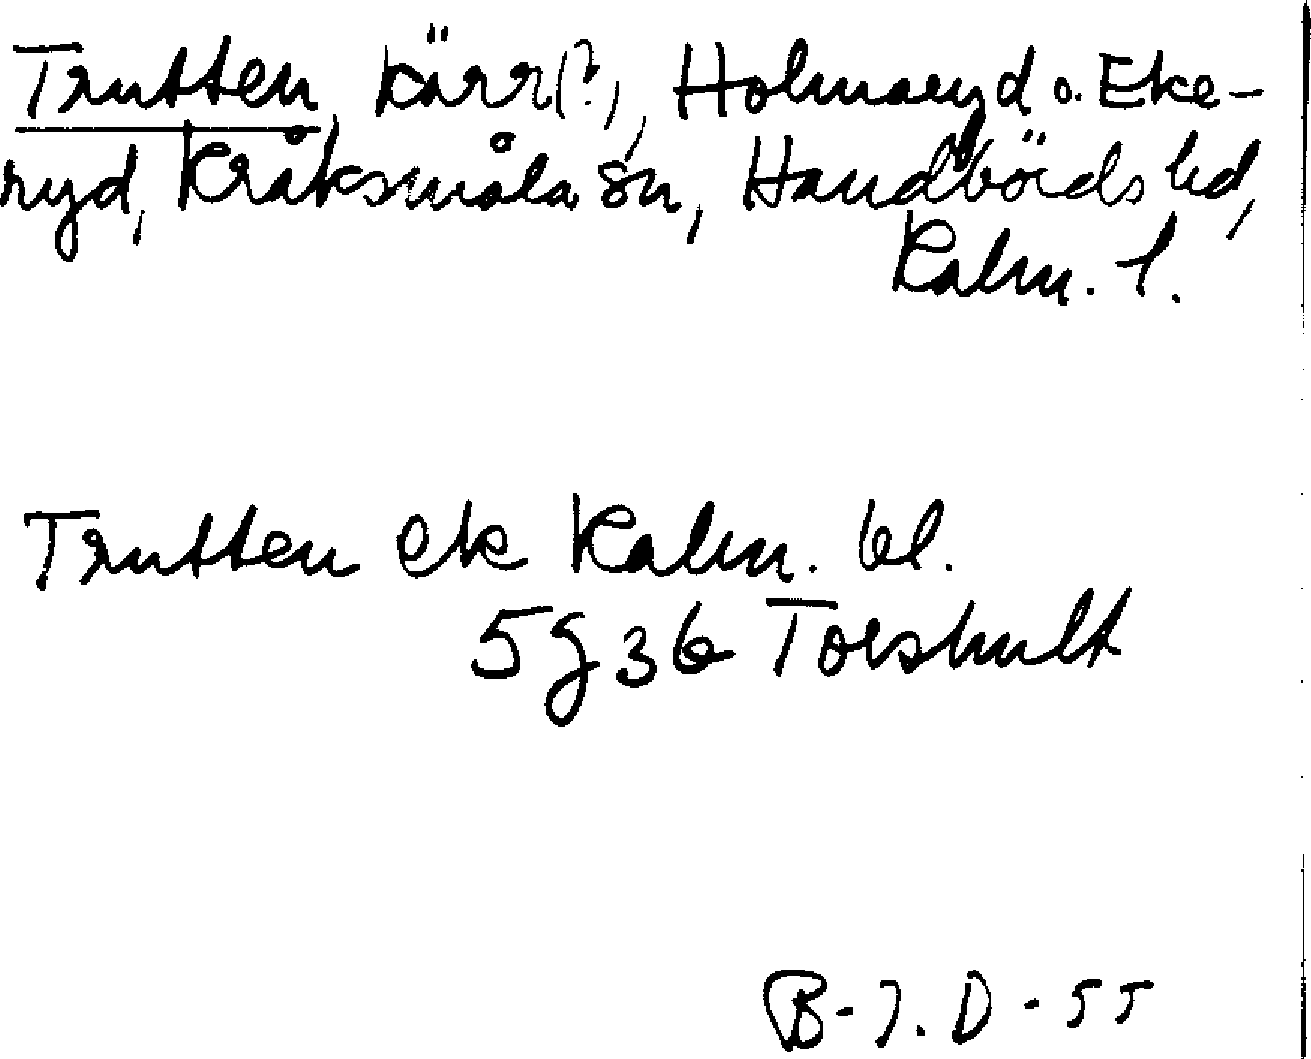 Trutten, kärr(?), Holmaryd o. Eke-
ryd, Kråksmåla sn, Handbörds hd,
Kalm. l.
Trutten ek Kalm. bl.
5g36 Torshult
B-J. D -55